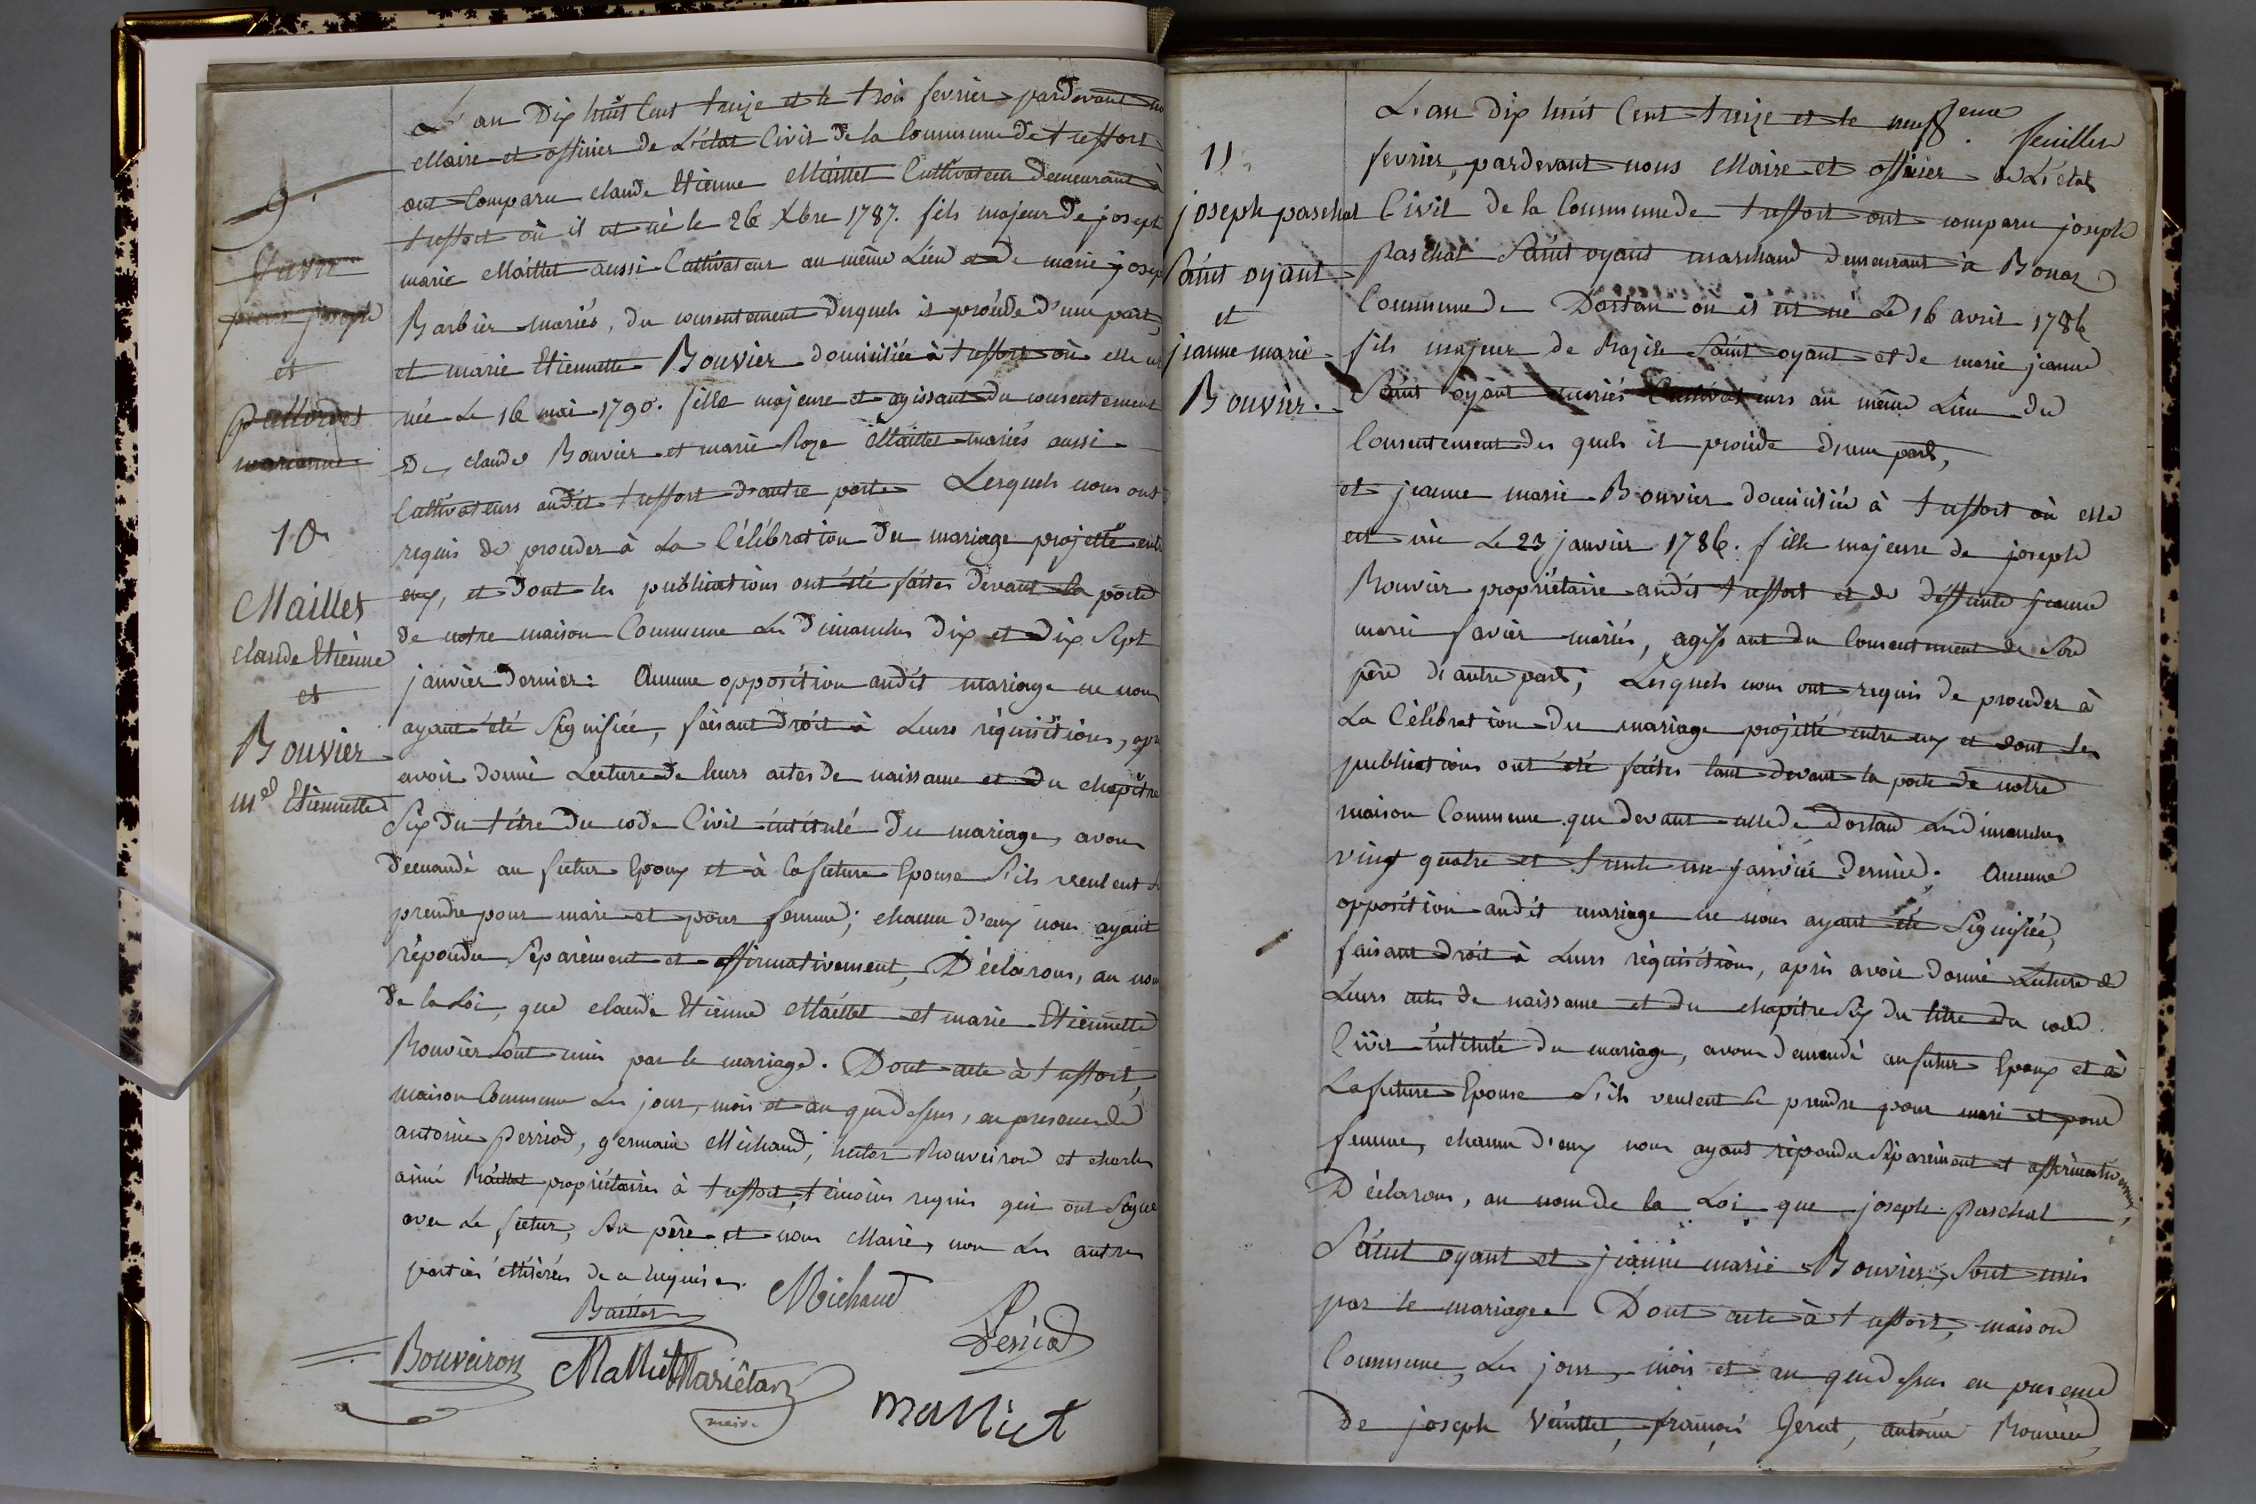 9.
favre
pierre joseph
et
Pallordet
marianne
10
Maillet
claude Etienne
et
Bouvier
m.el Etiennette
L'an Dix huit Cent treize et le trois fevrier pardevant
Maire et officier de L'état Civil de la Commune de treffort
ont Comparu claude Etienne Maillet Cultivateur demeurant à
treffort où il est né le 26 Xbre 1787. fils majeur de joseph
marie Maillet aussi Cultivateur au même Lieu et de marie josep
Barbier mariés, du consentement desquels il procéde d'une part,
et marie Etiennette Bouvier domiciliée à treffort où elle est
née le 16 mai 1790. fille majeure et agissant du consentement
De claude Bouvier et marie Roze Maillet mariés aussi
Cultivateurs audit treffort d'autre parte Lesquels nous ont
requis de proceder à La Célébration Du mariage projetté entr
eux, et dont les publications ont été faites devant la porte
de notre maison Commune les Dimanches dix et dix Sept
janvier dernier: Aucune opposition audit mariage ne nous
ayant été Signifiée, faisant droit à Leurs réquisitions, apr
avoir donné Lecture de leurs actes de naissance et du chapitre
Six du titre du code Civil intitulé Du mariage, avons
demandé au futur Epoux et à la future Epouse S'ils veulent se
prendre pour mari et pour femme; chacun d'eux nous ayant
répondu Séparément et affirmativement, Déclarons, au nom
de la Loi, que claude Etienne Maillet et marie Etiennette
Bouvier Sont unis par le mariage. Dont acte à treffort,
maison Commune les jour, mois et an que dessus, en presence de
antoine Perriod, germain Michaud, Bouveiron et charles
aimé Baillat propriétaires à treffort, témoins requis qui ont Signé
avec Le futur, Son père et nous Maire, non les autres
parties illiterées de ce enquises.
Michaud
Perriod
Bouveiron
Malliet
Mariétan
maire
malliet
feuillet
11
joseph paschal
Saint oyant
et
jeanne marie
Bouvier.
L'an dix huit Cent treize et le neuf
fevrier, pardevant nous Maire et officier de L'état
Civil de la Commune de treffort ont comparu joseph
Paschal Saint oyant marchand demeurant à Bonaz
Commune de Dortan où il est né le 16 avril 1786
fils majeur de Bazile Saint oyant et de marie jeanne
Saint oyant mariés Cultivateurs au même Lieu du
Consentement des quels il procéde d'une part,
et jeanne marie Bouvier domiciliée à treffort où elle
est née Le 23 janvier 1786. fille majeure de joseph
Bouvier propriétaire audit treffort et de deffunte jeanne
marie favier mariés, agissant du Consentement de Son
père d'autre part; Lesquels nous ont requis de proceder à
La Célébration du mariage projetté entre eux et dont les
publications ont été faites tant devant la porte de notre
maison Commune que devant celle de Dortan les dimanches
vingt quatre et trente un janvier dernier. Aucune
opposition audit mariage ne nous ayant été Signifiée,
faisant droit à Leurs réquisitions, après avoir donné Lecture de
Leurs actes de naissance et du chapitre Six du titre du code
Civil intitulé du mariage, avons demandé au futur Epoux et à
La future Epouse S'ils veulent se prendre pour mari et pour
femme, chacun d'eux nous ayant répondu Séparément et affirmativement,
Déclarons, au nom de la Loi que joseph Paschal
Saint oyant et jeanne marie Bouvier, Sont unis
par le mariage. Dont acte à treffort, maison
Commune, Les jour, mois et an que dessus en presence
de joseph françois antoine Bouvier,